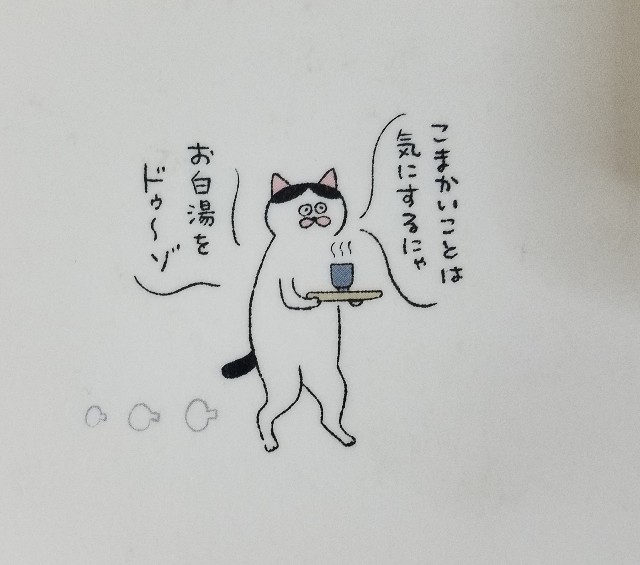 こまかいことは
気にするにゃ
お白湯を
ドゥ〜ゾ